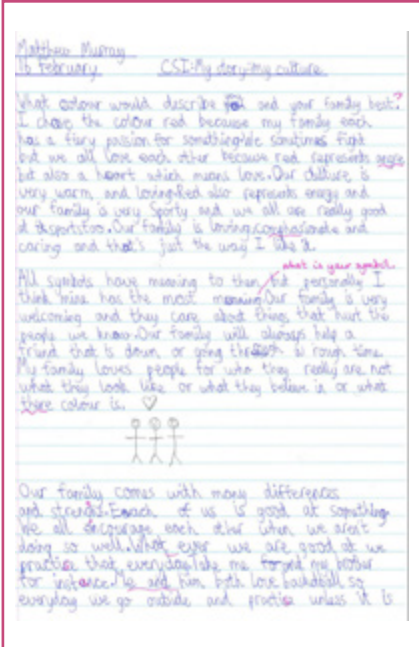 Matthew Murray
16 February CSI:My story:my culture
What colour would describe you and your family best?
I chose the colour red because my family each
has a fiery passion for something.We sometimes fight
but we all love each other because red represents anger
but also a heart which means love.Our culture is
very warm and loving.Red also represents energy and
our family is very Sporty and we all are really good
at sports too.Our family is loving,compassionate and
caring and that's just the way I like it.
what is your symbol.
All symbols have meaning to them but personally I
think mine has the most meaning.Our family is very
welcoming and they care about things that hurt the
people we know.Our family will always help a
friend that is down or going through a rough time.
My family loves people for who they really are not
what they look like or what they believe in or what
there colour is. ♡
Our family comes with many differences
and strenghs.Each of us is good at something.
We all encourage each other when we aren't
doing so well.What ever we are good at we
practise that everyday.Take me and my brother
for instance.Me and him both love basketball so
everyday we go outside and practise unless it is